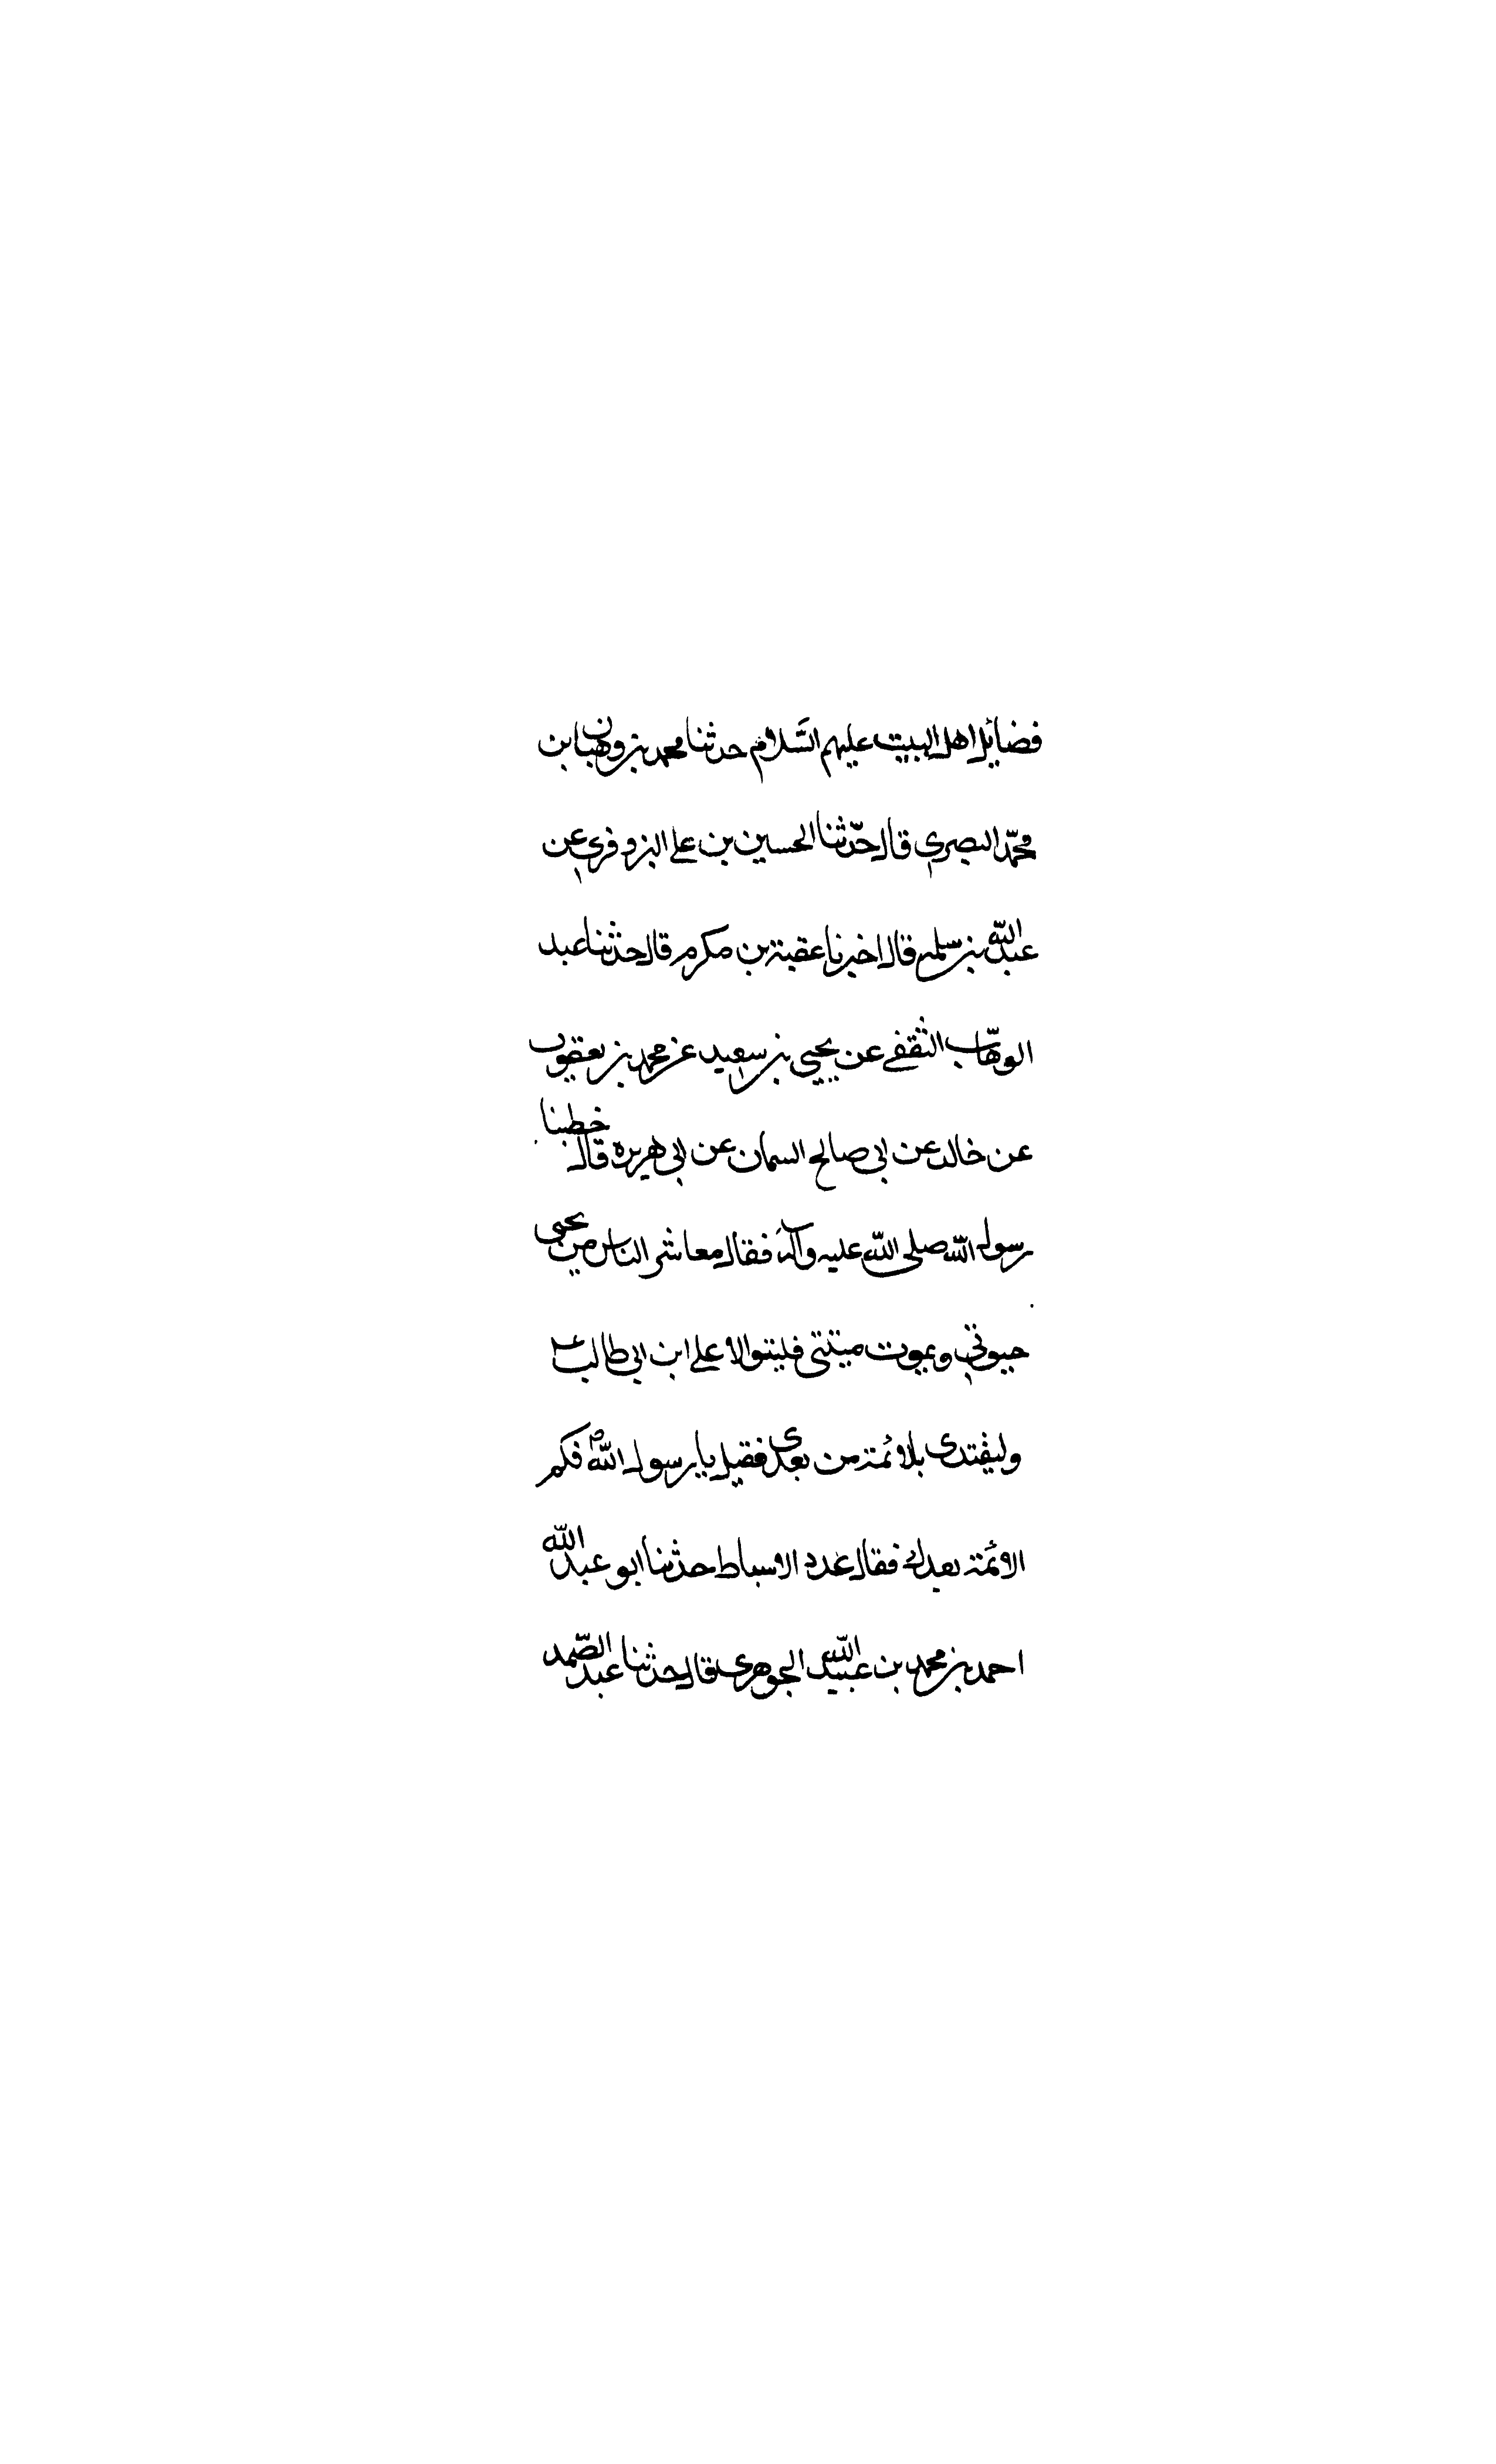 فضائل اهل البيت عليهم السَّلام حدثنا محمد بن وهبان بن
محمّد البصري قال حدّثنا الحسين بن علي البزوفري عن
عبد اللّه بن سلمه قال اخبرنا عقبة بن مكرم قال حدثنا عبد
الوهّاب الثقفي عن يحيى بن سعيد عن محمد بن يعقوب
عن خالد عن ابي صالح السمان عن ابي هريره قال خطبنا
رسول الله صلى الله عليه وآله فقال معاشر الناس من يحيى
حيوتي ويموت ميتتي فليتوالا علي ابن ابي طالب ع
وليقتدى بلائمة من بعدى فقيل يا رسول اللّه ص فكم
الائمة بعدك فقال عدد الاسباط حدثنا ابو عبد اللّه
احمد بن محمد بن عبيد اللّه الجوهرى قال حدثنا عبد الصّمد